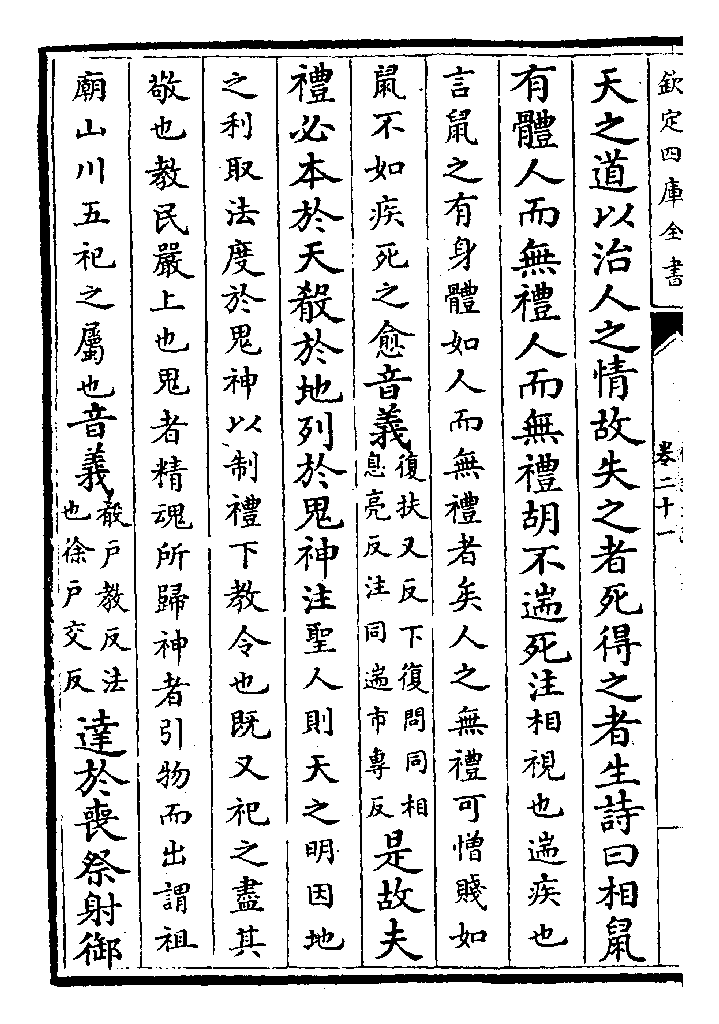 欽定四庫全書
卷二十一
天之道以治人之情故失之者死得之者生詩曰相鼠
有體人而無禮人而無禮胡不遄死注相視也遄疾也
言鼠之有身體如人而無禮者矣人之無禮可憎賤如
鼠不如疾死之愈音義復扶又反下復問同相息亮反注同遄市專反是故夫
禮必本於天殽於地列於鬼神注聖人則天之明因地
之利取法度於鬼神以制禮下教令也既又祀之盡其
敬也教民嚴上也鬼者精魂所歸神者引物而出謂祖
廟山川五祀之屬也音義殽戸教反法也徐戸交反達於喪祭射御